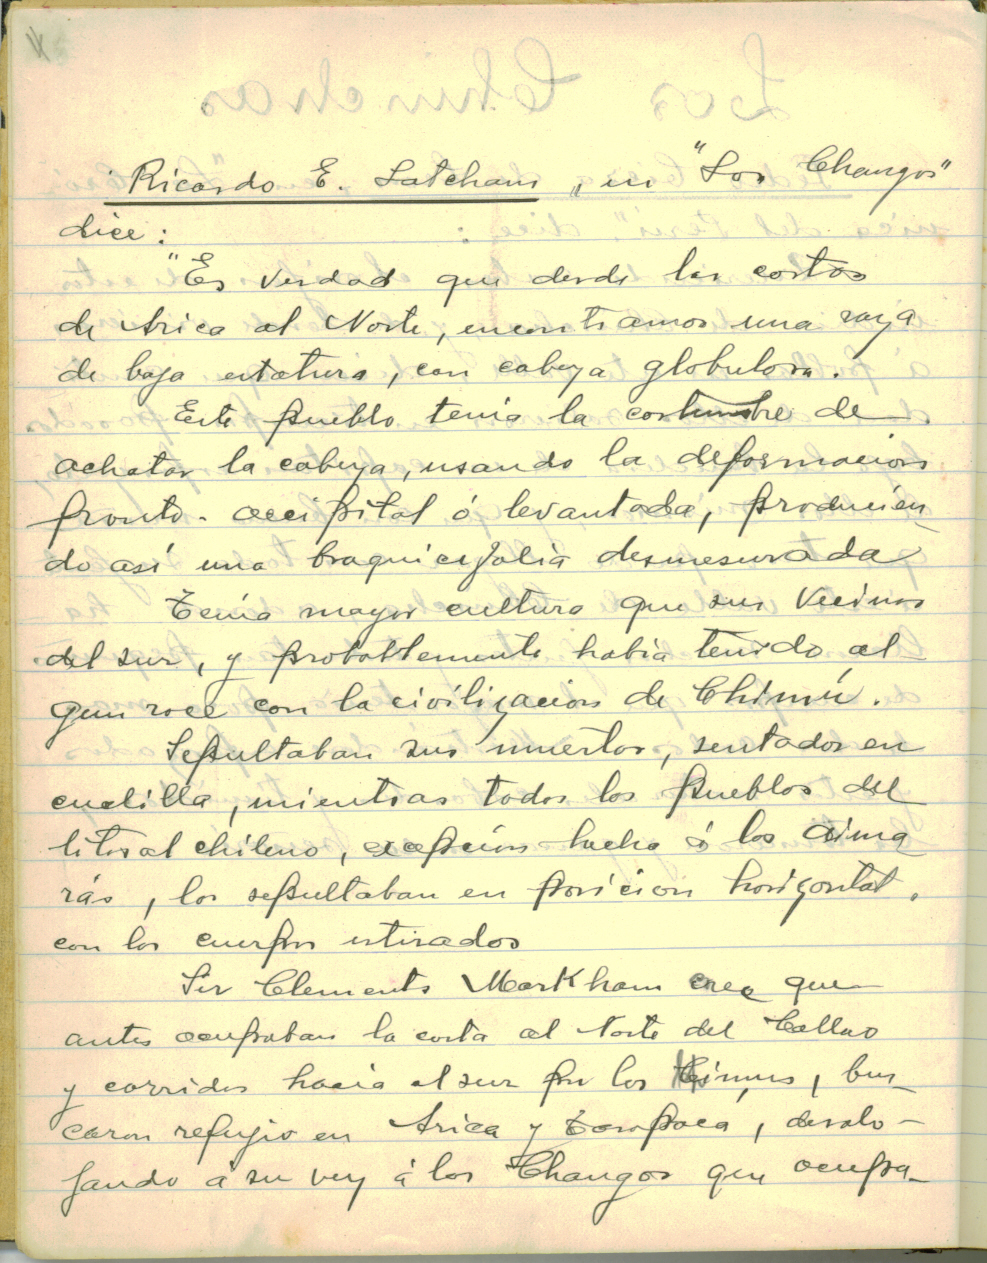 Ricardo E. Latcham, en "Los Changos"
dice:
"Es verdad que desde las costas
de Arica al Norte, encontramos una raza
de baja estatura, con cabeza globulosa.
Este pueblo tenia la costumbre de
achatar la cabeza, usando la deformacion
fronto-occipital ó levantada, producien_
do así una braquicefalia desmesurada
Tenia mayor cultura que sus vecinos
del sur, y probablemente habia tenido al_
gun roce con la civilizacion de Chimú.
Sepultaban sus muertos, sentados en
cuclilla, mientras todos los pueblos del
litoral chileno, excepcion hecha á los aima
rás, los sepultaban en posicion horizontal.
con los cuerpos estirados
Sir Clements Markham cree que
antes ocupaban la costa al Norte del Callao
y corridos hacia el sur por los, bus_
caron refugio en Arica y Tarapaca, desalo-
jando á su vez á los Changos que ocupa_